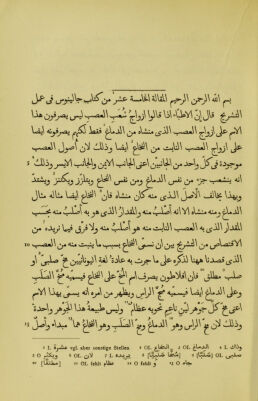 بسم الله الرحمن الرحيم المقالة الخامسة عشر من كتاب جالينوس في عمل
التشريح قال إنّ الاطبّاء اذا قالوا ازواج شُعَبِ العصب ليس يصرفون هذا
الاسم على ازواج العصب الذى منشاه من الدماغ فقط لكنهم يصرفونه ايضا
على ازواج العصب النابت من النخاع ايضا وذلك لان أصول العصب
موجودة فى كلّ واحد من الجانبين اعنى الجانب الايمن والجانب الايسر وذلك
انه ينشعب جزء من نفس الدماغ ومن نفس النخاع ويتلزّز ويكتنز ويشتدّ
وبهذا يخالف الأصل الذى منه كان منشاه فان النخاع ايضا مثاله مثال
الدماغ ومنه منشاه الا انه أصلب منه والمقدار الذى هو به أصلب منه بحسب
المقدار الذى به العصب النابت منه هو أصلب منه ولا فرق فيما نريده من
الاقتصاص من التشريح بين ان نسمّى النخاع بسبب ما ينبت منه من العصب
الذى قصدنا ههنا لذكره على ما جرت به عادة لغة اليونانيّين مخ صلبىّ او
صلب مطلق فان افلاطون يصرف اسم المخّ على النخاع فيسمّيه مخّ الصلب
وعلى الدماغ ايضا فيسمّيه مخّ الراس ويظهر من امره انه يسمّى بهذا الاسم
اعنى مخّ كلّ جوهر ليّن ناعم تحويه عظام وليس طبيعة هذا الجوهر واحدة
وذلك لان مخّ الراس وهو الدماغ ومخّ الصلب وهو النخاع هما مبداء وأصل